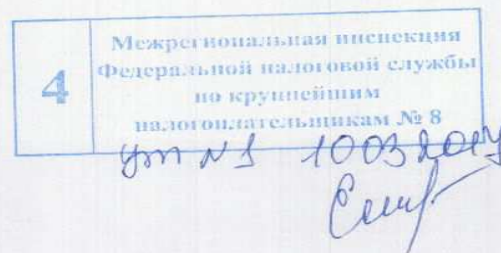 4
Межрегиональная инспекция
Федеральной налоговой службы
по крупнейшим
налогоплательщикам № 8
№ 1 10032017